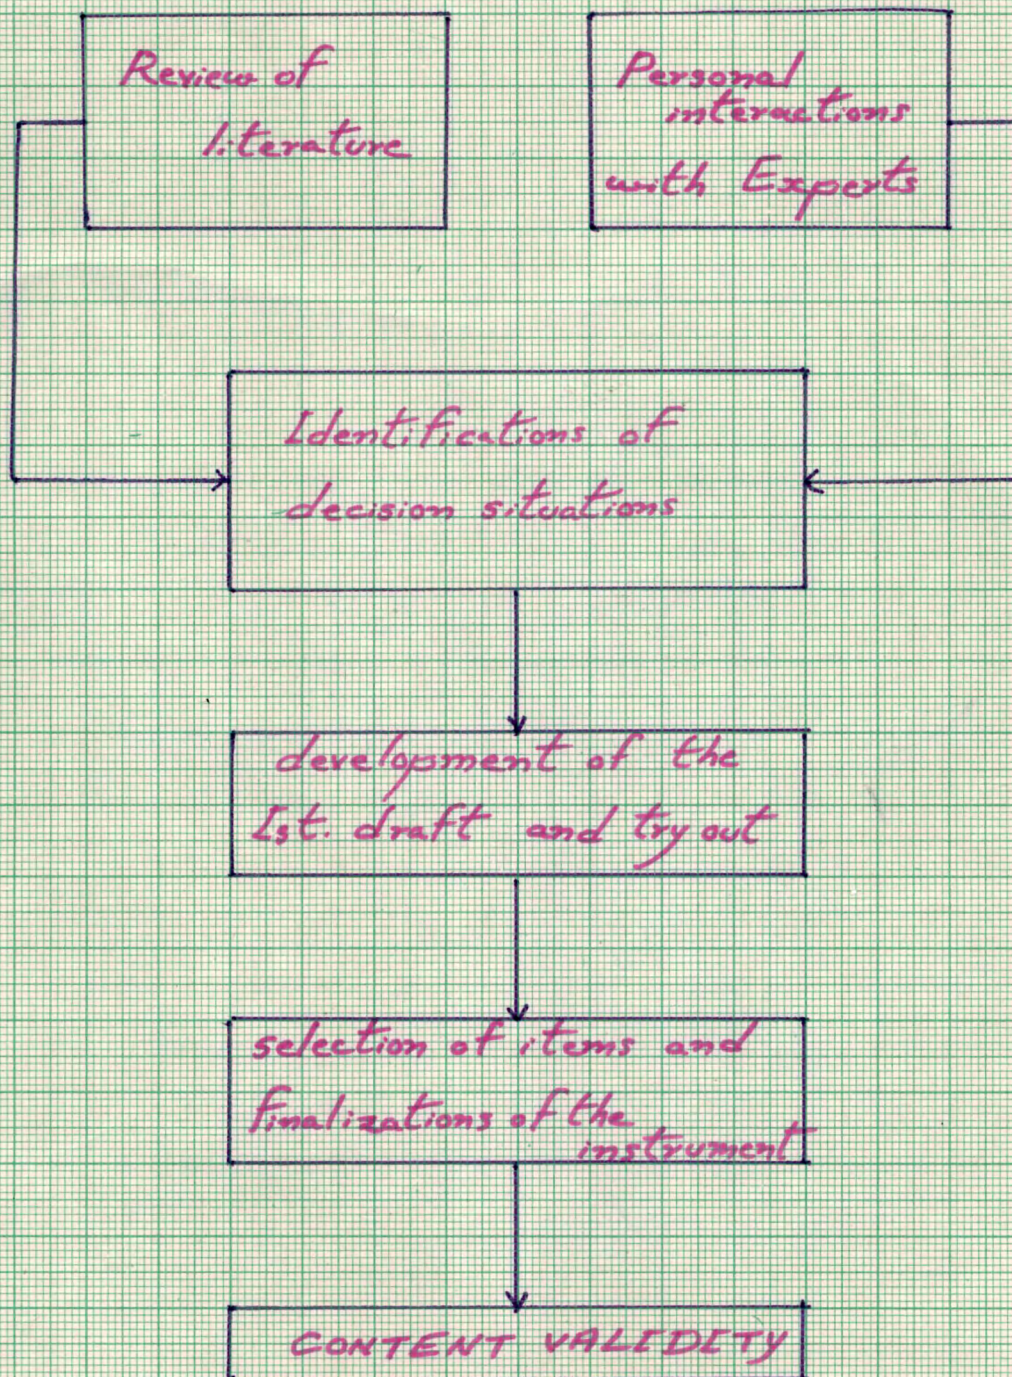 Review of
literature
Personal
interactions
with Experts
Identifications of
decision situations
development of the
Ist. draft and try out
selection of items and
finalizations of the
instrument
CONTENT VALIDITY